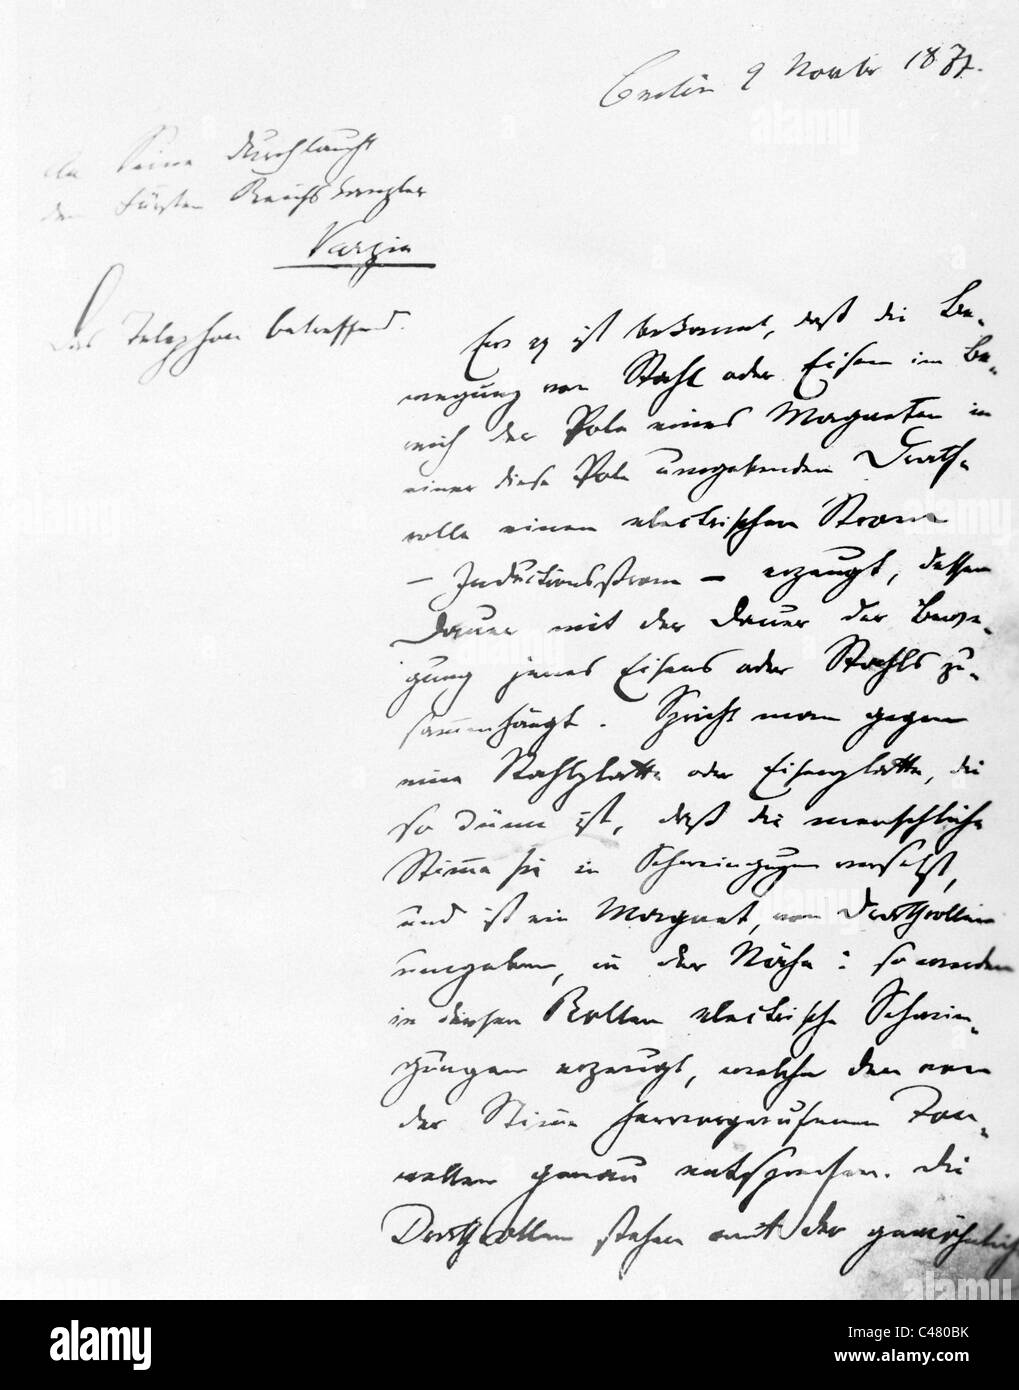 Berlin 9 Novbr 1877.
An Seine Durchlaucht
den Fürsten Reichskanzler
Varzin
Das Telephon betreffend.
Es ist bekannt, daß die Be-
wegung von Stahl oder Eisen im Be-
reich der Pole eines Magneten in
einer diese Pole umgebenden Drath-
rolle einen electrischen Strom
— Inductionsstrom — erzeugt, dessen
Dauer mit der Dauer der Bewe-
gung jenes Eisens oder Stahls zu-
sammenhängt. Spricht man gegen
eine Stahlplatte oder Eisenplatte, die
so dünn ist, daß die menschliche
Stimme sie in Schwingungen versetzt,
und ist ein Magnet, von Drathrollen
umgeben, in der Nähe: so werden
in diesen Rollen electrische Schwin-
gungen erzeugt, welche den von
der Stimme hervorgerufenen Ton-
wellen genau entsprechen. Die
Drathrollen stehen mit der gewöhnlich
alamy
Image ID: C480BK
www.alamy.com